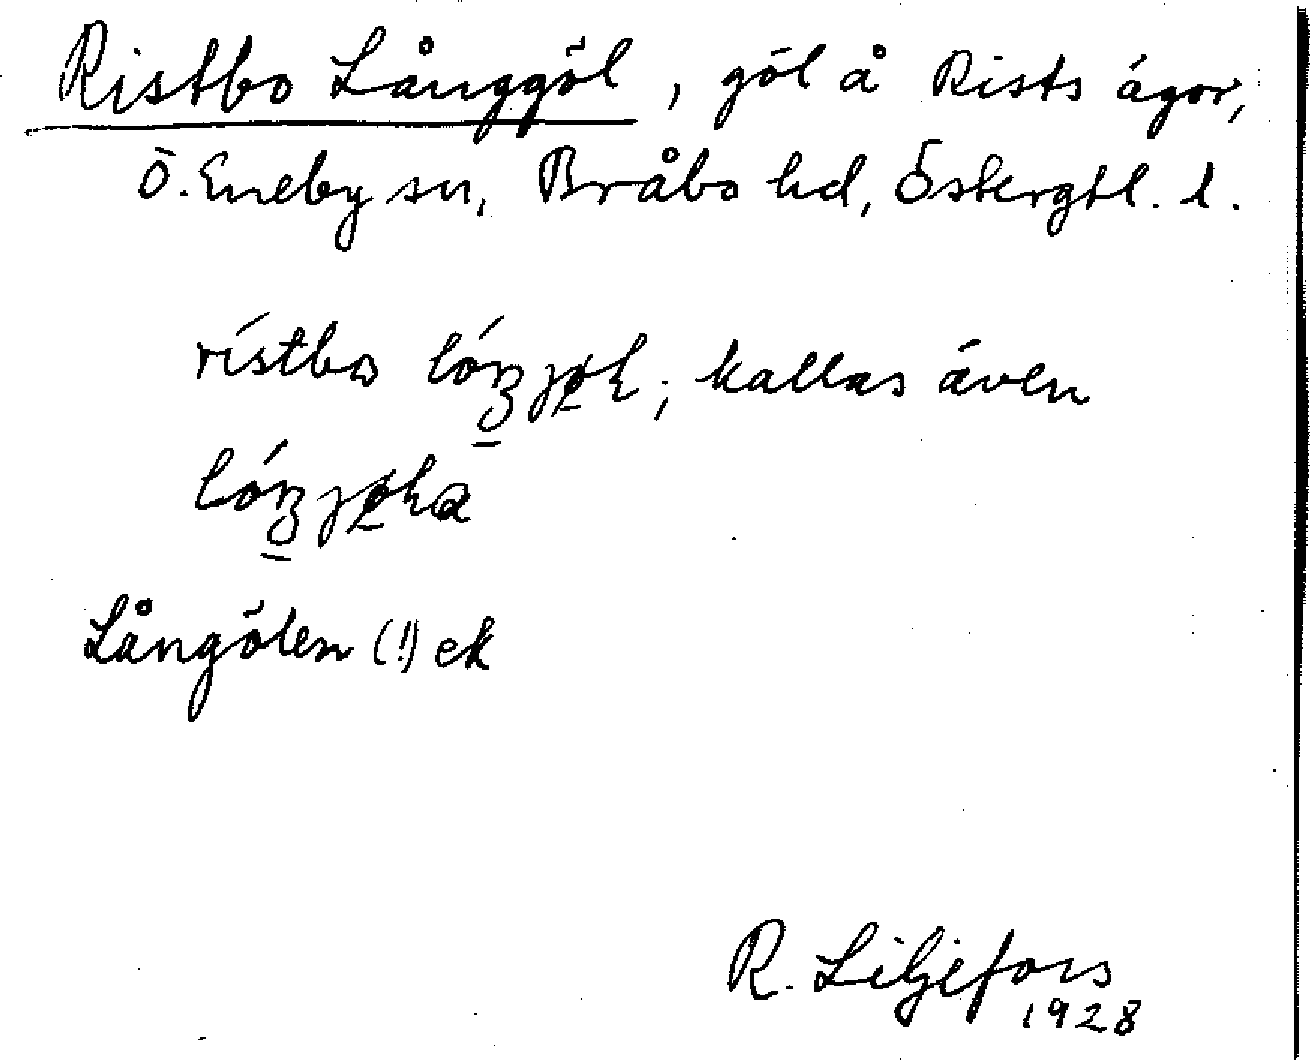 Ristbo Långgöl, göl å Rists ägor,
Ö. Eneby sn, Bråbo hd, Östergtl. l.
rístbo ; kallas även
Långölen (!) ek
R. Liljefors
1928